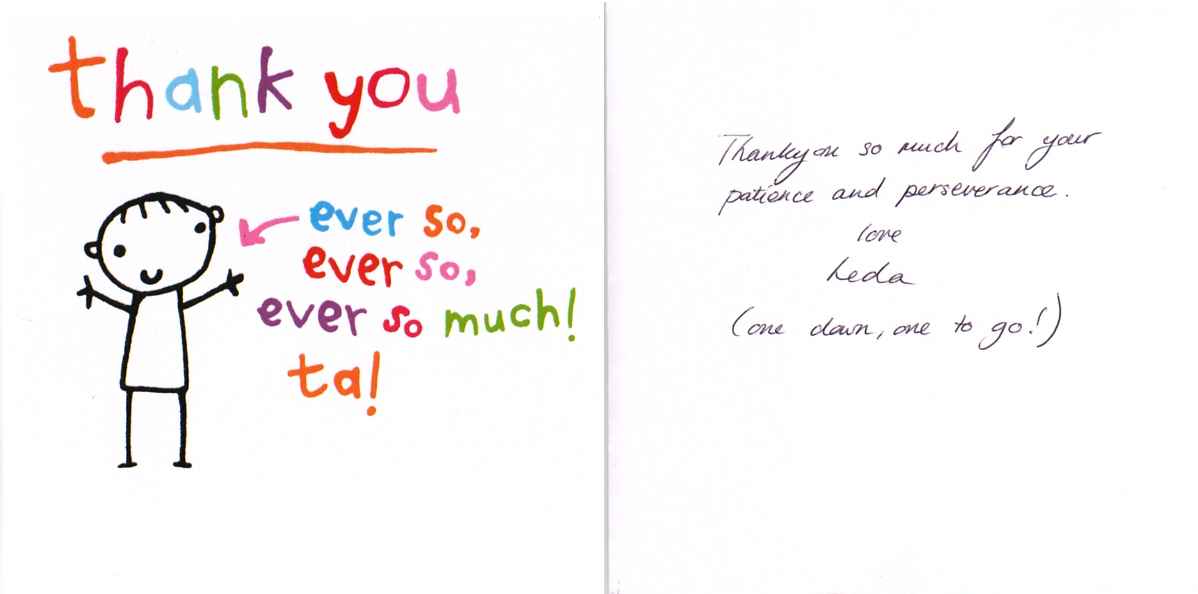 thank you
ever so,
ever so,
ever so much!
ta!
Thankyou so much for your
patience and perseverance.
love
Leda
(one down, one to go!)